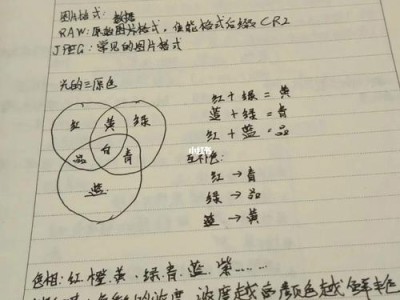 图片格式: 数据
RAW: 原始图片格式, 佳能格式后缀 CR2
JPEG: 常见的图片格式
光的三原色
红 黄 绿
品 白 青
蓝
红 + 绿 = 黄
蓝 + 绿 = 青
红 + 蓝 = 品
互补色:
红 → 青
绿 → 品
蓝 → 黄
小红书
色相: 红.橙.黄.绿.青.蓝.紫……
浓度越高颜色越鲜